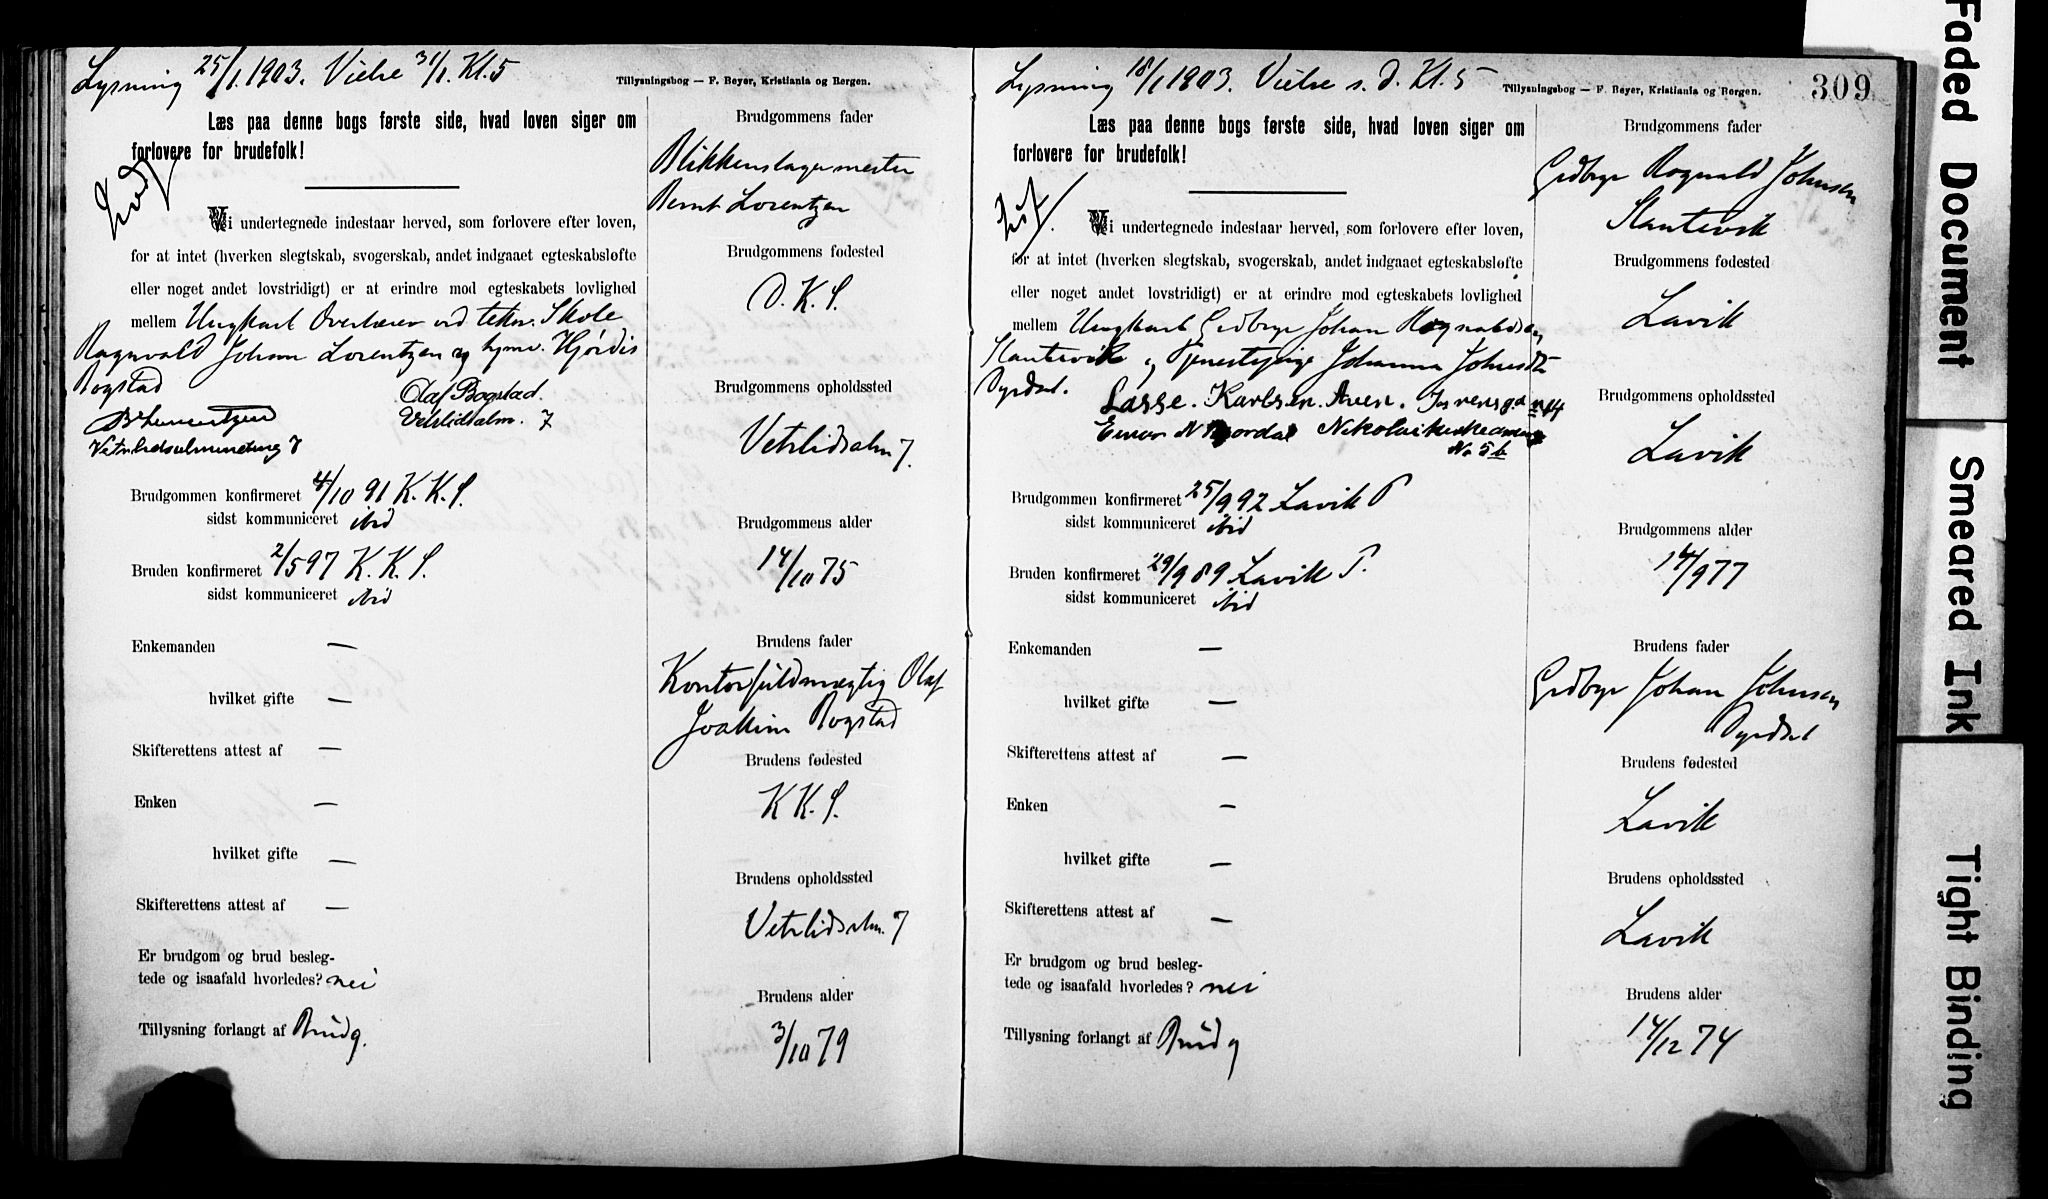 Lysning 25/1. 1903. Vielse 31/1. Kl. 5
Tillysningsbog — F. Beyer, Kristiania og Bergen.
Læs paa denne bogs første side, hvad loven siger om
forlovere for brudefolk!
Vi undertegnede indestaar herved, som forlovere efter loven,
for at intet (hverken slegtskab, svogerskab, andet indgaaet egteskabsløfte
eller noget andet lovstridigt) er at erindre mod egteskabets lovlighed
mellem Ungkarl Overlærer ved tekn. Skole
Ragnvald Johan Lorentzen og Hjørdis
Bogstad
Olaf Bogstad.
B Lorentzen
Vetrlidsalm. 7
Vetrlidsalmending 7
Brudgommen konfirmeret 4/10 91 K. K. S.
sidst kommuniceret ibid
Bruden konfirmeret 2/5 97 K. K. S.
sidst kommuniceret ibid
Enkemanden —
hvilket gifte —
Skifterettens attest af —
Enken —
hvilket gifte —
Skifterettens attest af —
Er brudgom og brud besleg-
tede og isaafald hvorledes? nei
Tillysning forlangt af Brudg.
Brudgommens fader
Blikkenslagermester
Bernt Lorentzen
Brudgommens fødested
D. K. S.
Brudgommens opholdssted
Vetrlidsalm 7.
Brudgommens alder
14/10 75
Brudens fader
Kontorfuldmægtig Olaf
Joakim Bogstad
Brudens fødested
K K. S.
Brudens opholdssted
Vetrlidsalm. 7
Brudens alder
3/10 79
Lysning 18/1 1903. Vielse s. D. Kl. 5
Tillysningsbog — F. Beyer, Kristiania og Bergen.
309
Læs paa denne bogs første side, hvad loven siger om
forlovere for brudefolk!
Vi undertegnede indestaar herved, som forlovere efter loven,
for at intet (hverken slegtskab, svogerskab, andet indgaaet egteskabsløfte
eller noget andet lovstridigt) er at erindre mod egteskabets lovlighed
mellem Ungkarl Grdbr Johan Rognaldsen
Stantevik og Tjenestepige Johanna Johnsdtr
Dyrdal.
Lasse. Karlsen. No 44
Einar N
No 5 b
Brudgommen konfirmeret 25/9 92 Lavik P
sidst kommuniceret ibid
Bruden konfirmeret 29/9 89 Lavik P.
sidst kommuniceret ibid
Enkemanden —
hvilket gifte —
Skifterettens attest af —
Enken —
hvilket gifte —
Skifterettens attest af —
Er brudgom og brud besleg-
tede og isaafald hvorledes? nei
Tillysning forlangt af Brudg
Brudgommens fader
Grdbr Rognald Johnsen
Stantevik
Brudgommens fødested
Lavik
Brudgommens opholdssted
Lavik
Brudgommens alder
14/9 77
Brudens fader
Grdbr Johan Johnsen
Dyrdal
Brudens fødested
Lavik
Brudens opholdssted
Lavik
Brudens alder
14/12 74
Faded Document
Smeared Ink
Tight Binding